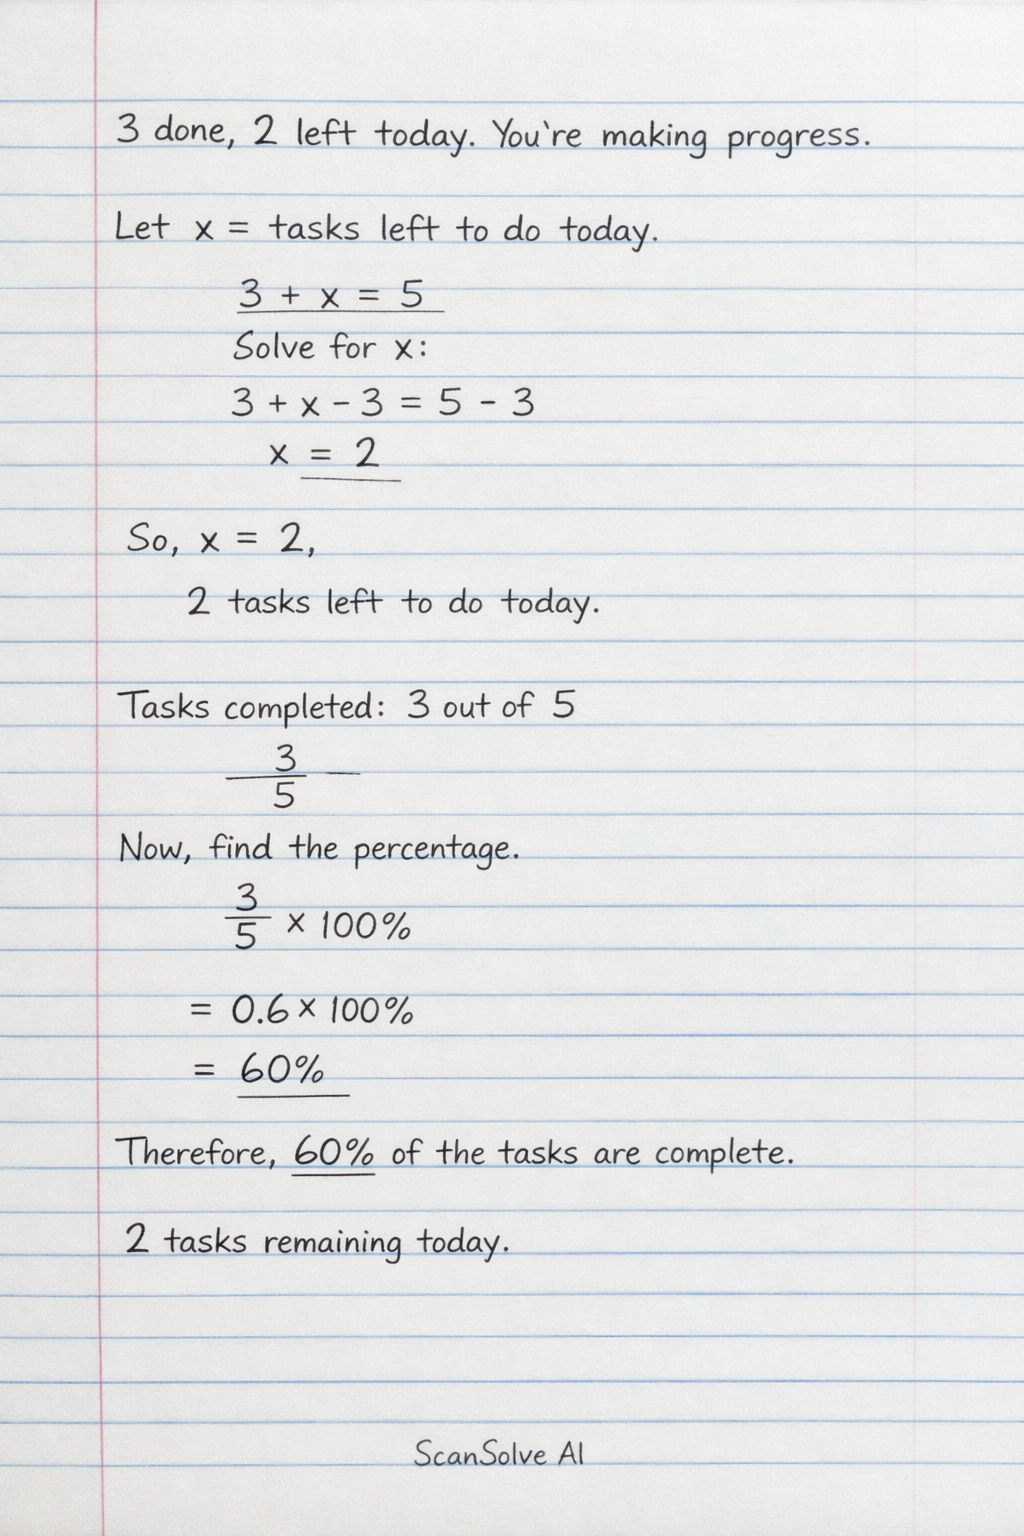 3 done, 2 left today. You're making progress.
Let x = tasks left to do today.
3 + x = 5
Solve for x:
3 + x - 3 = 5 - 3
x = 2
So, x = 2,
2 tasks left to do today.
Tasks completed: 3 out of 5
3
5
Now, find the percentage.
3/5 × 100%
= 0.6 × 100%
= 60%
Therefore, 60% of the tasks are complete.
2 tasks remaining today.
ScanSolve AI